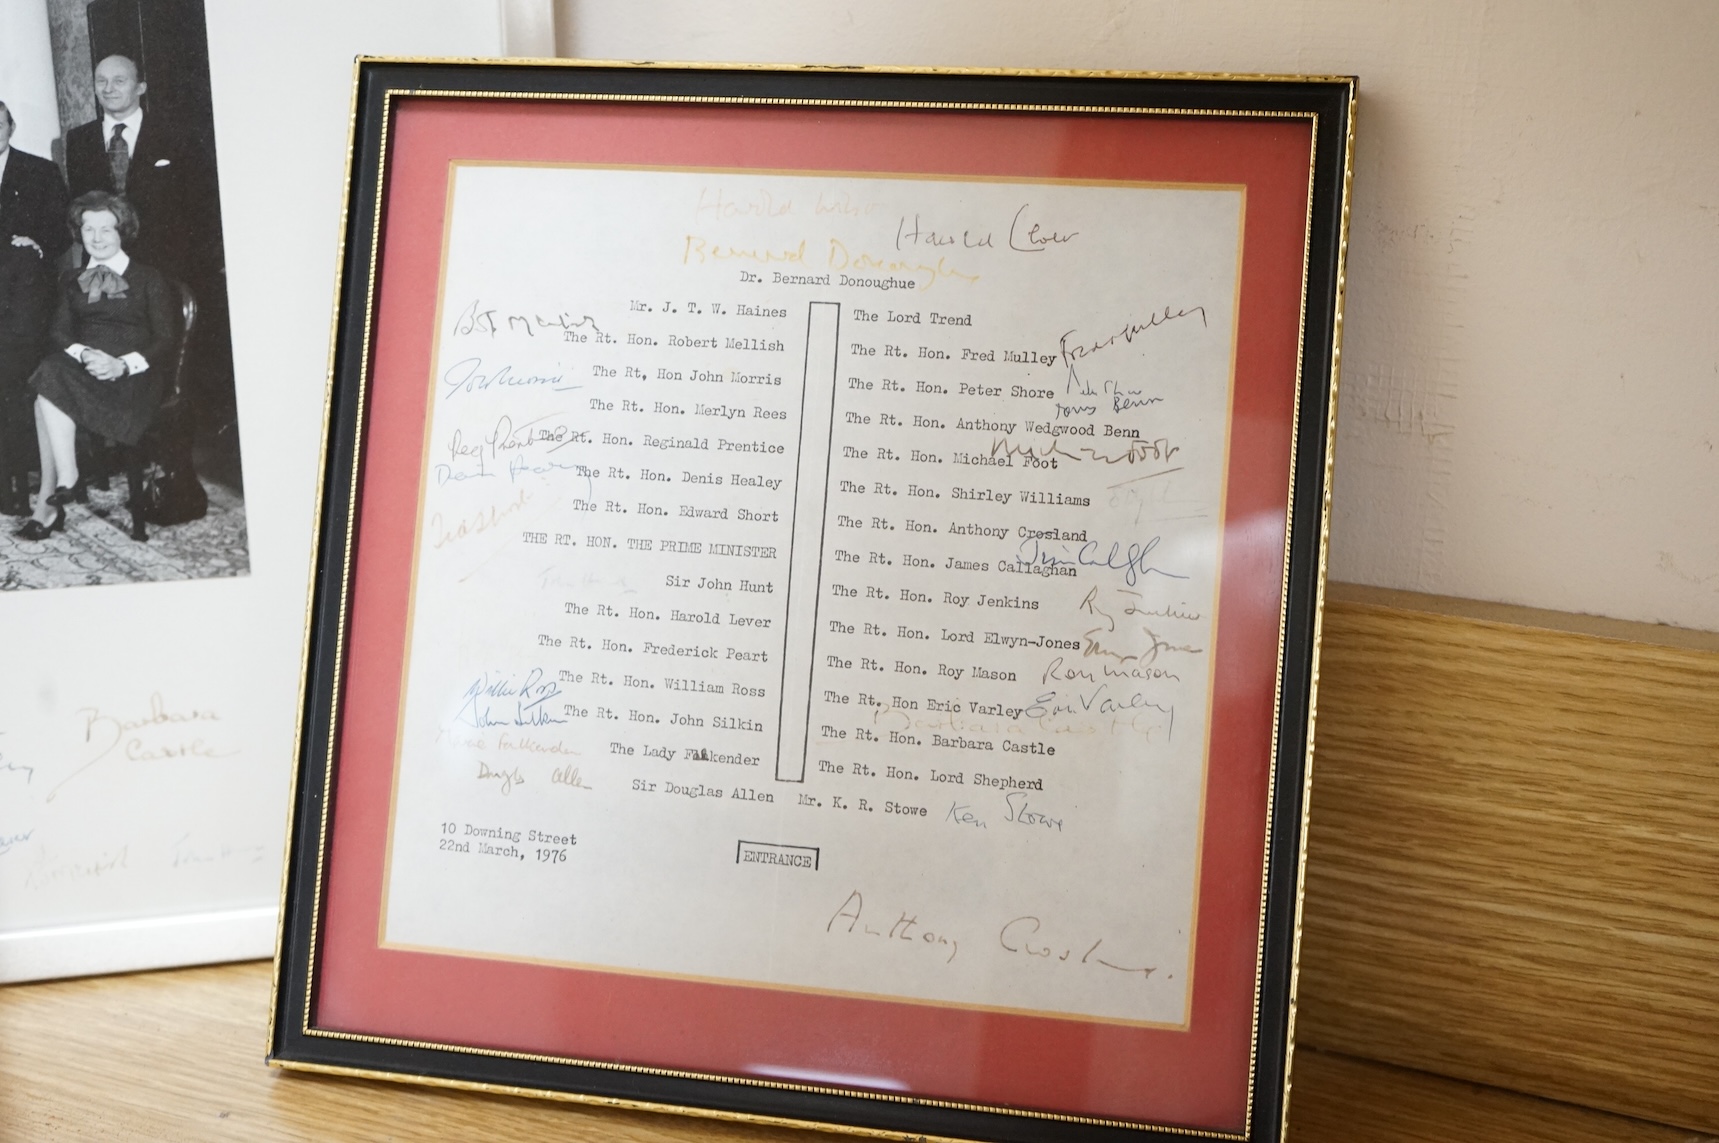 Harold Wilson
Harold Lever
Bernard Donoughue
Dr. Bernard Donoughue
Mr. J. T. W. Haines
The Rt. Hon. Robert Mellish
The Rt, Hon John Morris
The Rt. Hon. Merlyn Rees
The Rt. Hon. Reginald Prentice
The Rt. Hon. Denis Healey
The Rt. Hon. Edward Short
THE RT. HON. THE PRIME MINISTER
Sir John Hunt
The Rt. Hon. Harold Lever
The Rt. Hon. Frederick Peart
The Rt. Hon. William Ross
The Rt. Hon. John Silkin
The Lady Falkender
Sir Douglas Allen
The Lord Trend
The Rt. Hon. Fred Mulley
The Rt. Hon. Peter Shore
The Rt. Hon. Anthony Wedgwood Benn
The Rt. Hon. Michael Foot
The Rt. Hon. Shirley Williams
The Rt. Hon. Anthony Crosland
The Rt. Hon. James Callaghan
The Rt. Hon. Roy Jenkins
The Rt. Hon. Lord Elwyn-Jones
The Rt. Hon. Roy Mason
The Rt. Hon Eric Varley
The Rt. Hon. Barbara Castle
The Rt. Hon. Lord Shepherd
Mr. K. R. Stowe
Bob Mellish
John Morris
Reg Prentice
Denis Healey
Ted Short
Willie Ross
John Silkin
Marcia Falkender
Douglas Allen
Fred Mulley
Peter Shore
Tony Benn
Michael Foot
Jim Callaghan
Roy Jenkins
Elwyn Jones
Roy Mason
Eric Varley
Barbara Castle
Ken Stowe
10 Downing Street
22nd March, 1976
ENTRANCE
Anthony Crosland.
Barbara
Castle